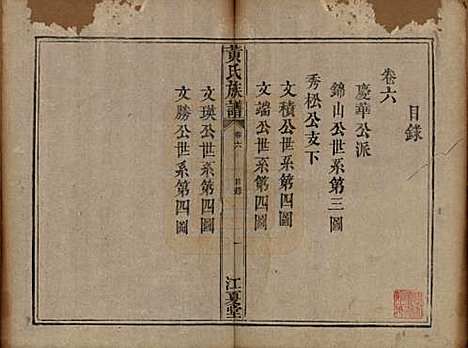 目錄
卷六
慶華公派
錦山公世系第三圖
秀松公支下
文積公世系第四圖
文端公世系第四圖
黃氏族譜
卷六
目錄
一
江夏堂
文瑛公世系第四圖
文勝公世系第四圖